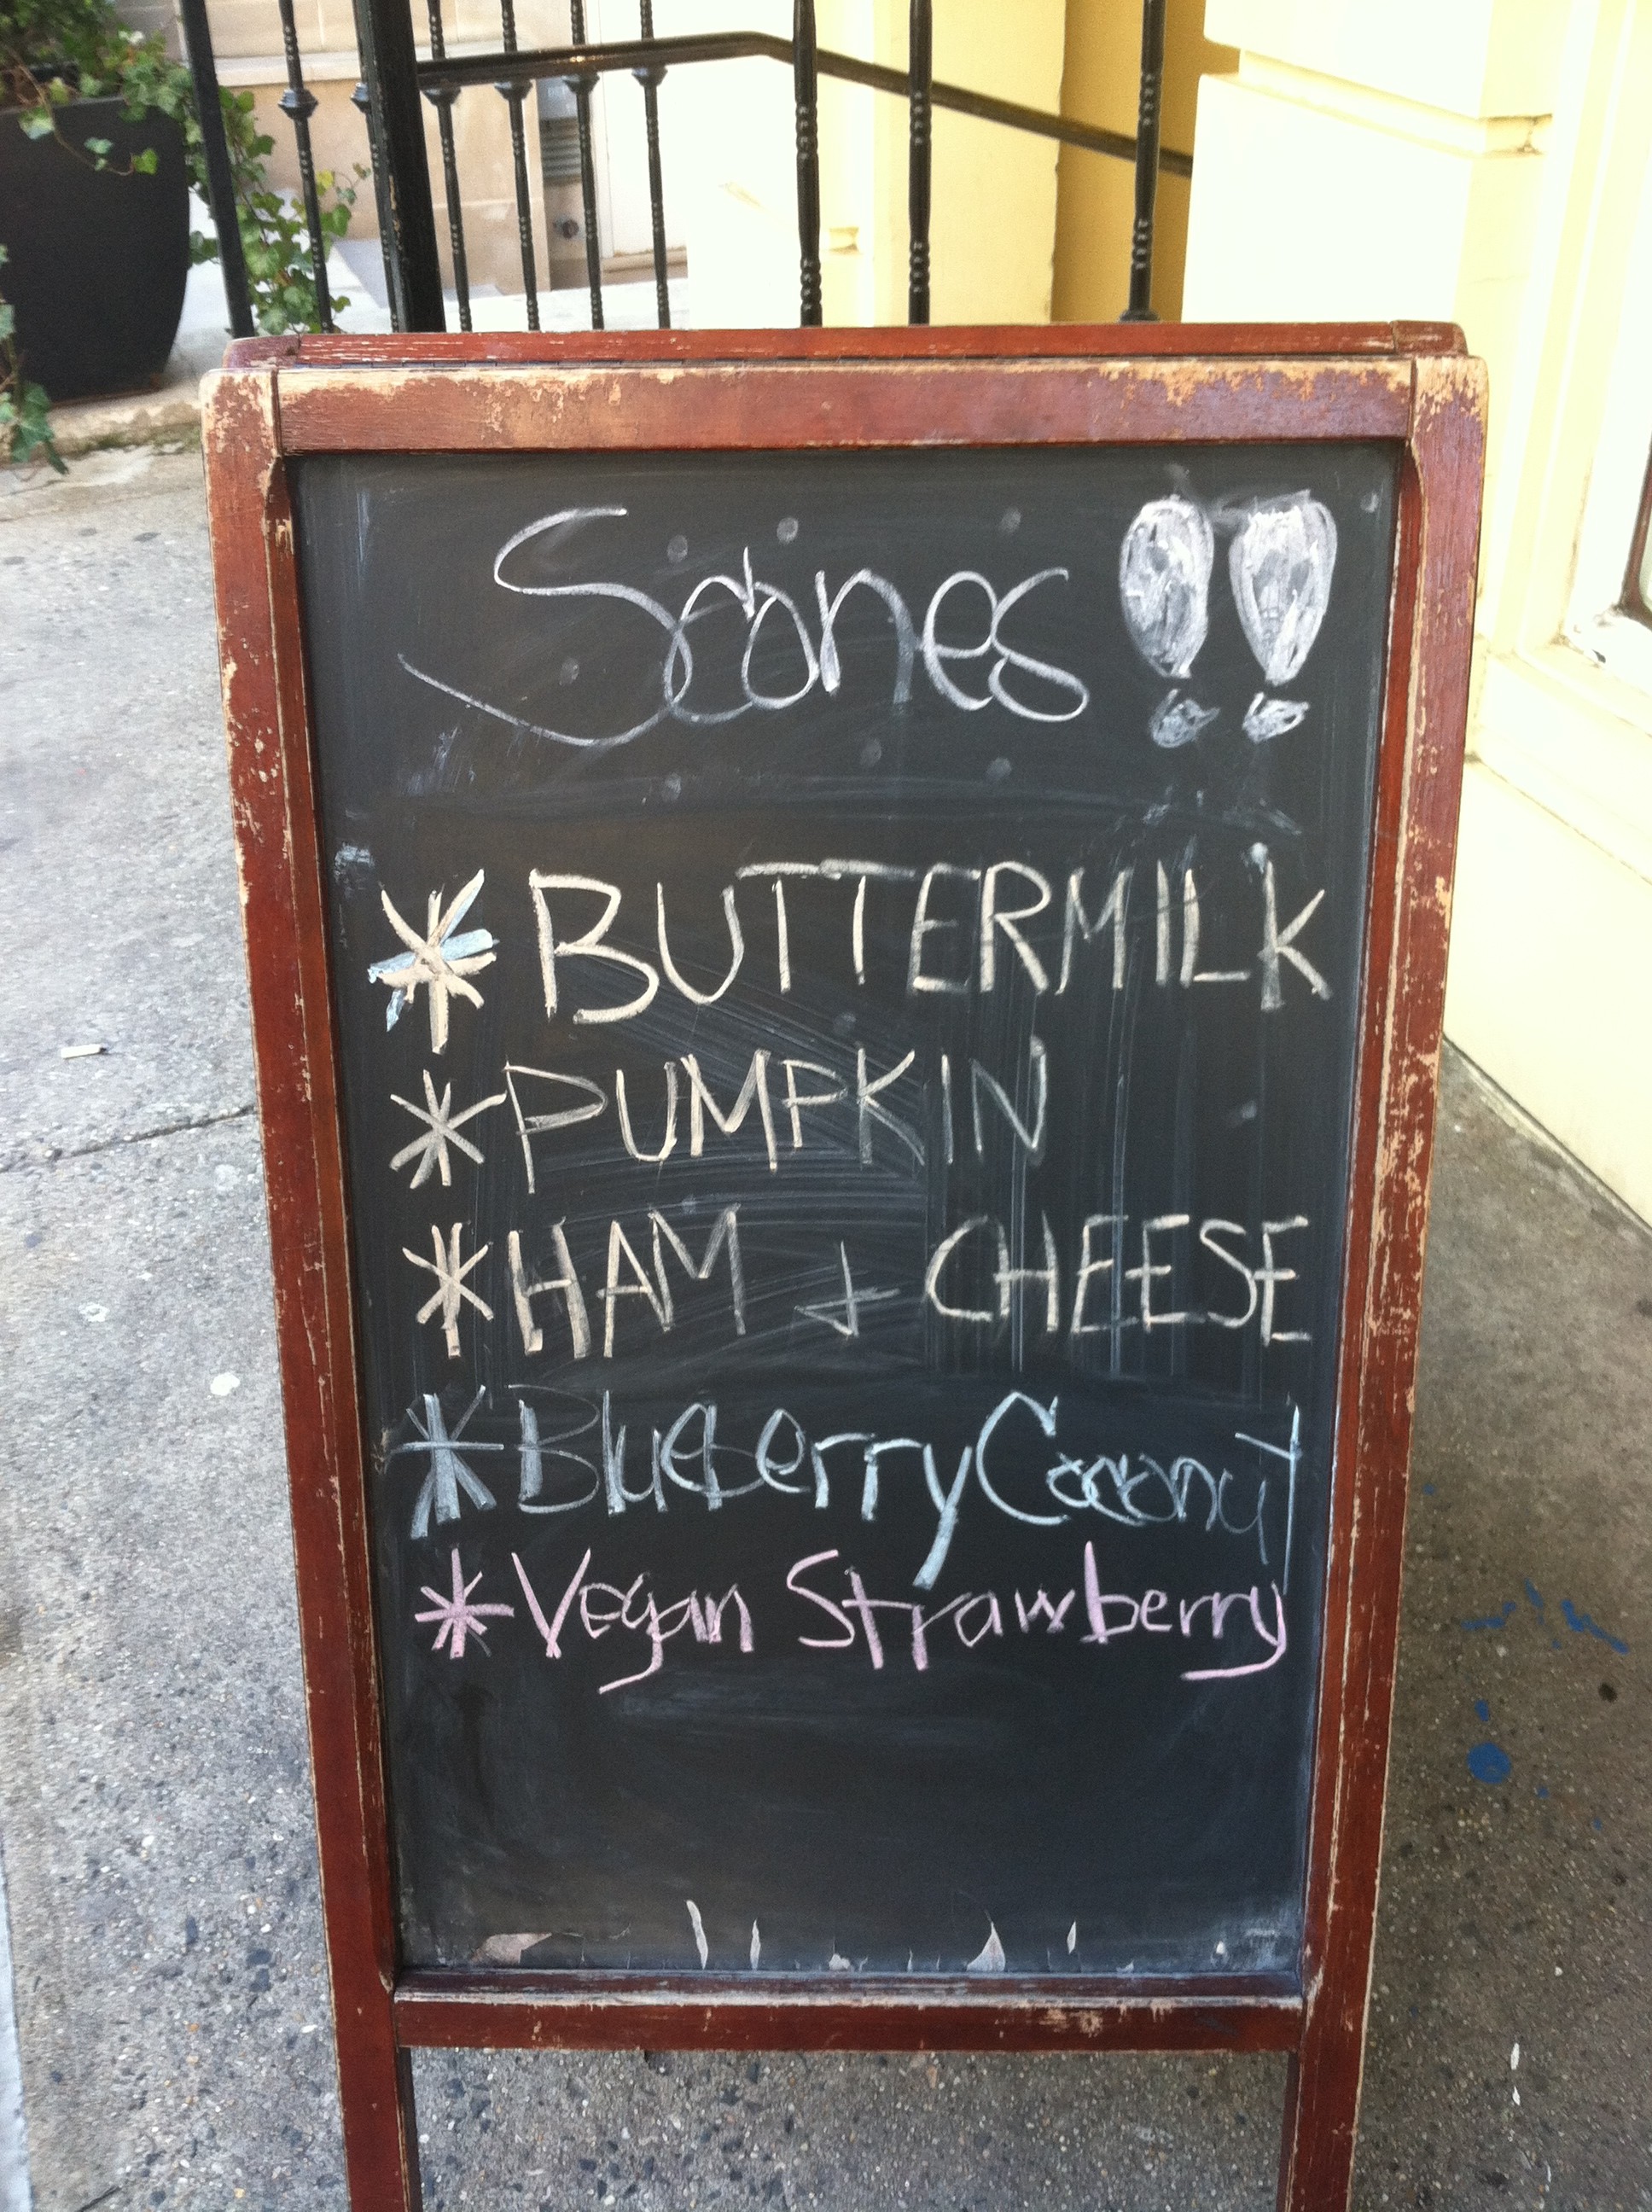 Scones!!
* BUTTERMILK
* PUMPKIN
* HAM + CHEESE
* Blueberry Coconut
* Vegan Strawberry